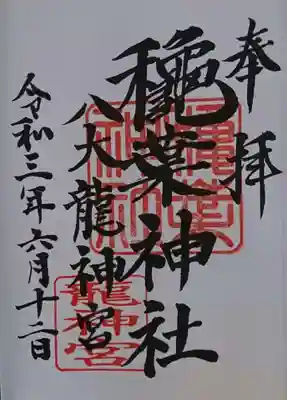 奉拝
穐葉神社
八大龍神宮
令和三年六月十二日
穐葉神社
龍神宮